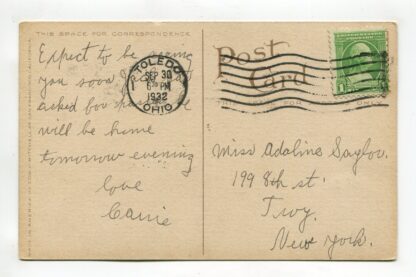 THIS SPACE FOR CORRESPONDENCE
Expect to be seeing
you soon
asked for
will be home
tomorrow evening
love
Carrie
TOLEDO
SEP 30
6 PM
1932
OHIO
1
Post
Card
ONLY
Miss Adaline Saylov.
199 8th st.
Troy.
New York.